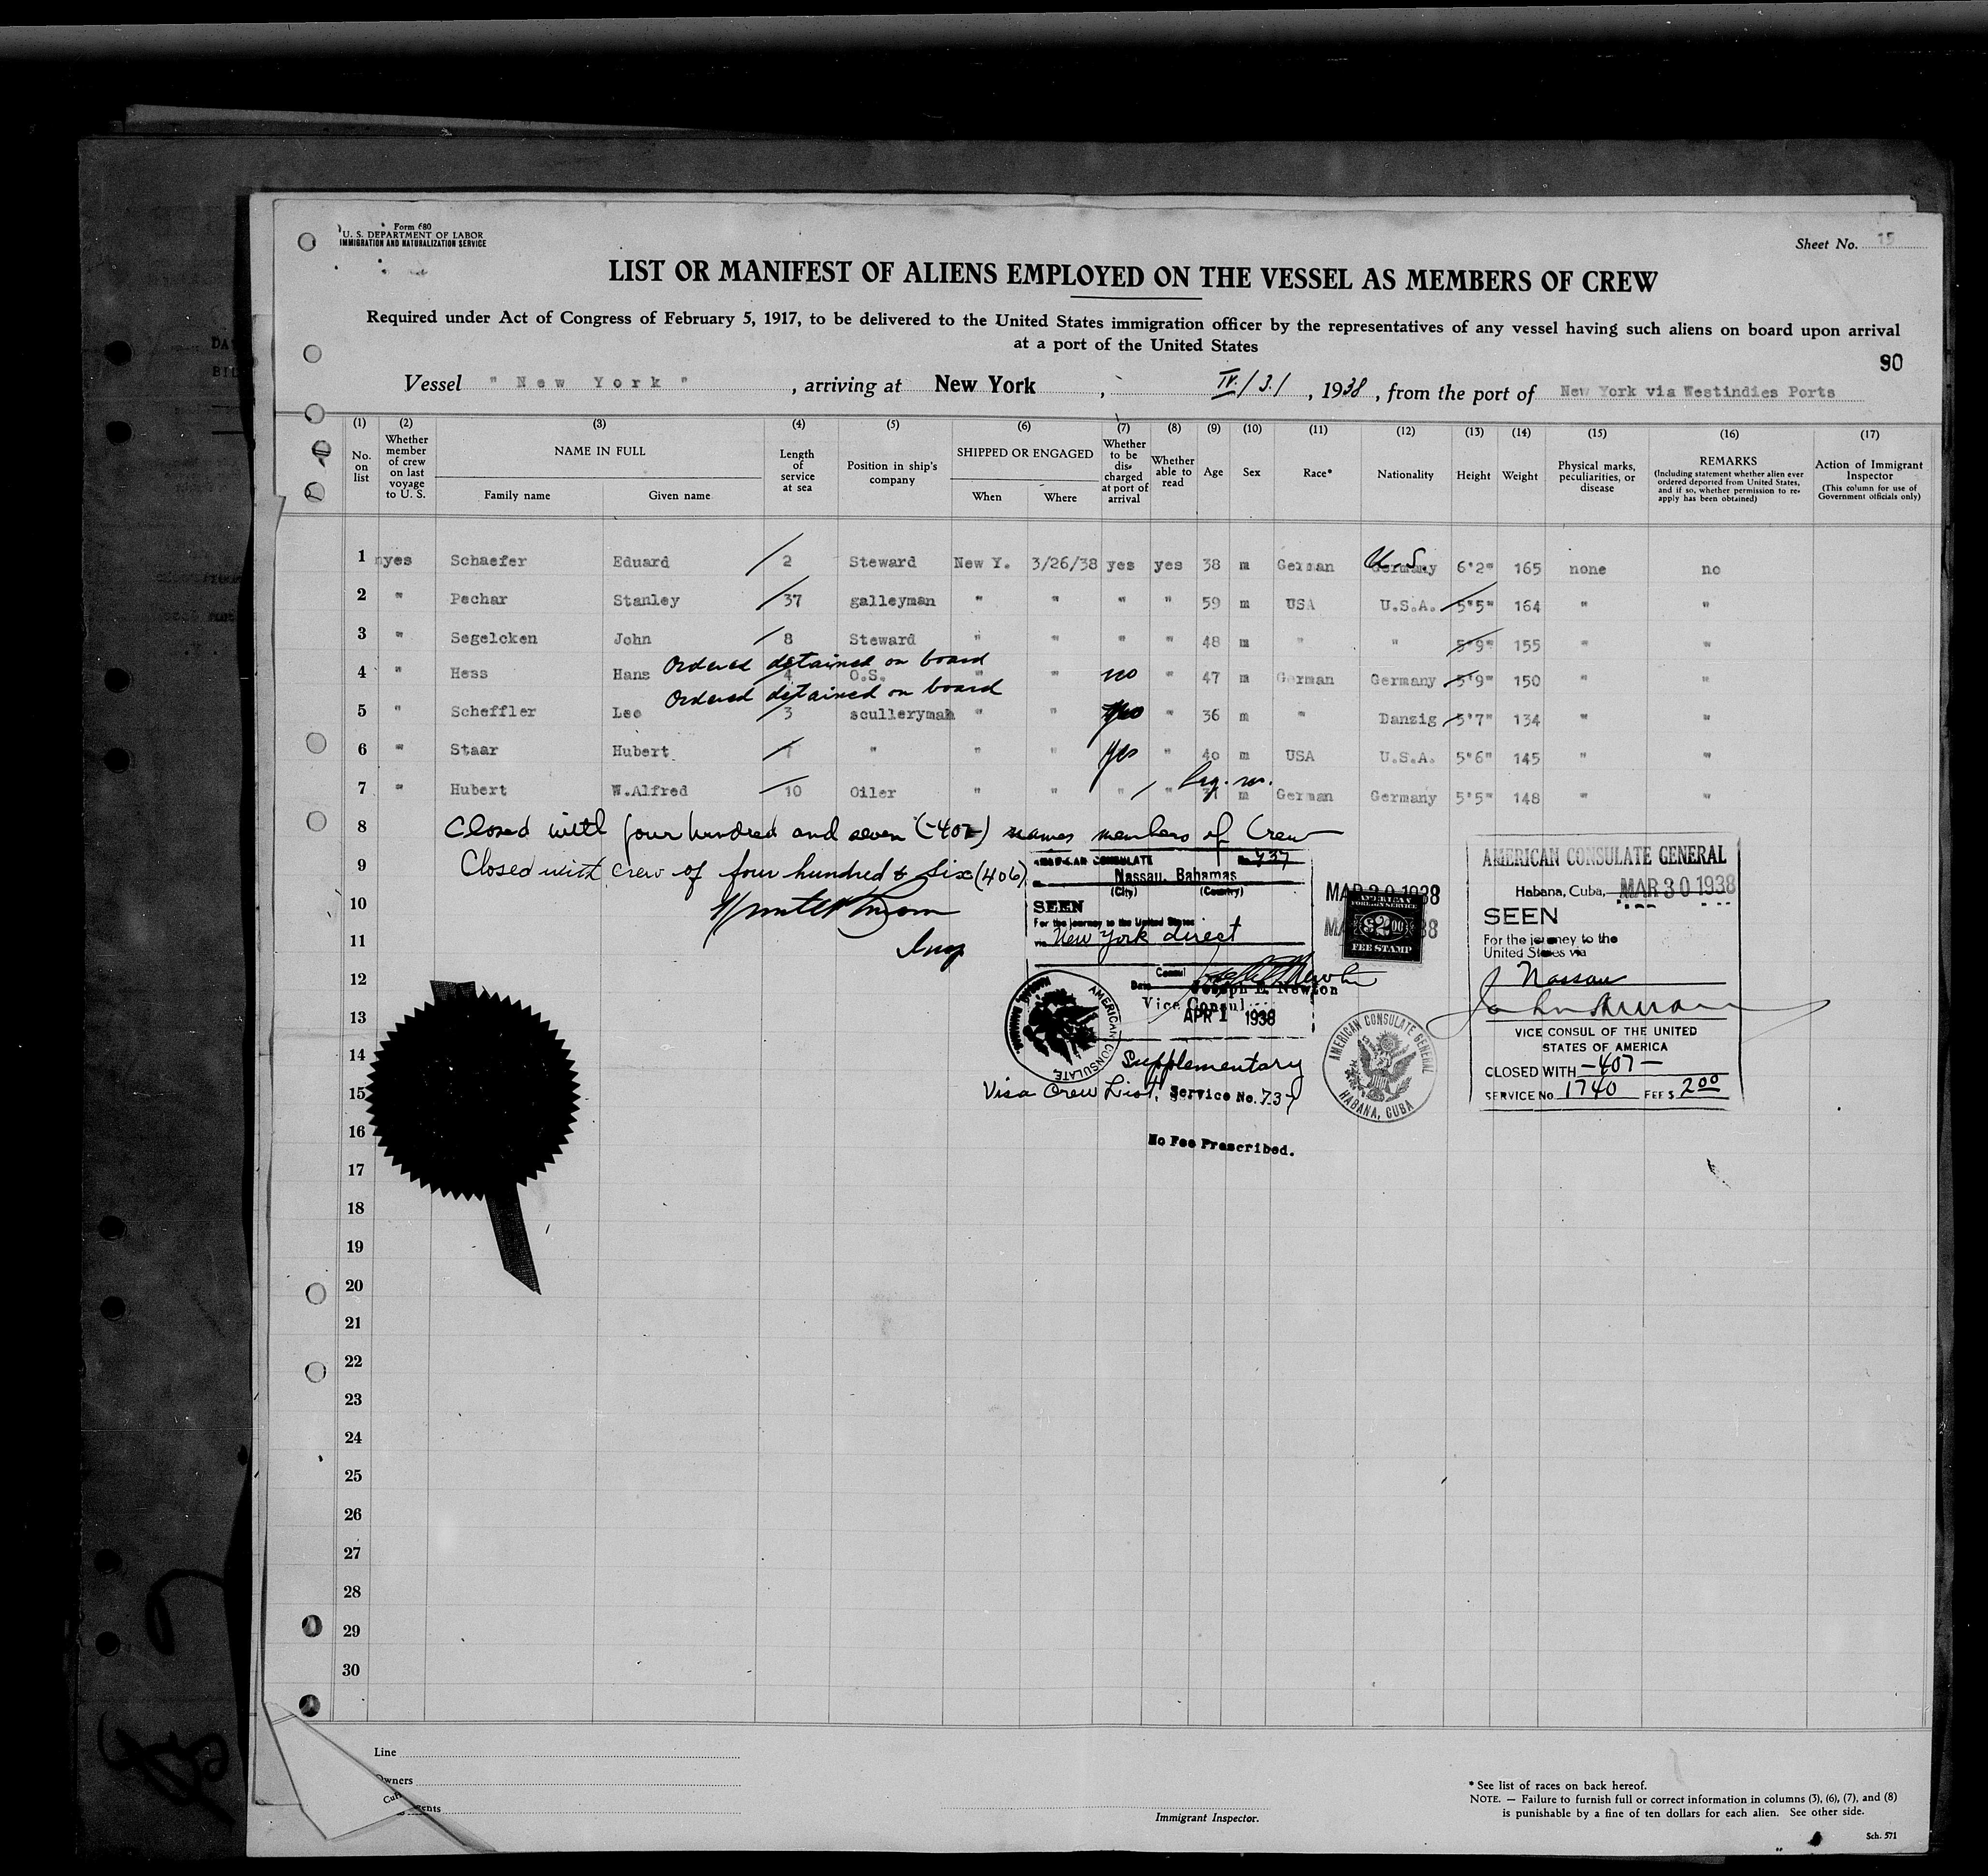 Form 680
U. S. DEPARTMENT OF LABOR
IMMIGRATION AND NATURALIZATION SERVICE
Sheet No. 15
LIST OR MANIFEST OF ALIENS EMPLOYED ON THE VESSEL AS MEMBERS OF CREW
Required under Act of Congress of February 5, 1917, to be delivered to the United States immigration officer by the representatives of any vessel having such aliens on board upon arrival
at a port of the United States
90
Vessel " New York ", arriving at New York, IV./3./, 1938, from the port of New York via Westindies Ports
(1) (2) (3) (4) (5) (6) (7) (8) (9) (10) (11) (12) (13) (14) (15) (16) (17)
No. on list
Whether member of crew on last voyage to U. S.
NAME IN FULL
Family name Given name
Length of service at sea
Position in ship's company
SHIPPED OR ENGAGED
When Where
Whether to be discharged at port of arrival
Whether able to read
Age
Sex
Race*
Nationality
Height
Weight
Physical marks, peculiarities, or disease
REMARKS
(Including statement whether alien ever ordered deported from United States, and if so, whether permission to reapply has been obtained)
Action of Immigrant Inspector
(This column for use of Government officials only)
1 yes Schaefer Eduard 2 Steward New Y. 3/26/38 yes yes 38 m German Germany U.S. 6'2" 165 none no
2 " Pechar Stanley 37 galleyman " " " " 59 m USA U.S.A. 5'5" 164 " "
3 " Segelcken John 8 Steward " " " " 48 m " " 5'9" 155 " "
Ordered detained on board
4 " Hess Hans 4 O.S. " " no " 47 m German Germany 5'9" 150 " "
Ordered detained on board
5 " Scheffler Leo 3 sculleryman " " no " 36 m " Danzig 5'7" 134 " "
6 " Staar Hubert " " " yes " 40 m USA U.S.A. 5'6" 145 " "
7 " Hubert W.Alfred 10 Oiler " " " " 31 m German Germany 5'5" 148 " "
8 Closed with four hundred and seven (-407-) names members of Crew
9 Closed with crew of four hundred & six (406)
10
11
12
13
14
15
16
17
18
19
20
21
22
23
24
25
26
27
28
29
30
AMERICAN CONSULATE No. 737
Nassau, Bahamas
(City) (Country)
SEEN
For the journey to the United States
via New York direct
Consul
Joseph E. Newton
Date
Vice Consul
APR 1 1938
AMERICAN CONSULATE
NASSAU, BAHAMAS
Supplementary
Visa Crew List, Service No. 737
No Fee Prescribed.
MAR 30 1938
AMERICAN
FOREIGN SERVICE
$2.00
FEE STAMP
AMERICAN CONSULATE GENERAL
HABANA, CUBA
AMERICAN CONSULATE GENERAL
Habana, Cuba, MAR 30 1938
SEEN
For the journey to the
United States via
Nassau
VICE CONSUL OF THE UNITED
STATES OF AMERICA
CLOSED WITH -407-
SERVICE No. 1740 FEE $ 2.00
Line
Owners
Immigrant Inspector.
* See list of races on back hereof.
NOTE. — Failure to furnish full or correct information in columns (3), (6), (7), and (8)
is punishable by a fine of ten dollars for each alien. See other side.
Sch. 571